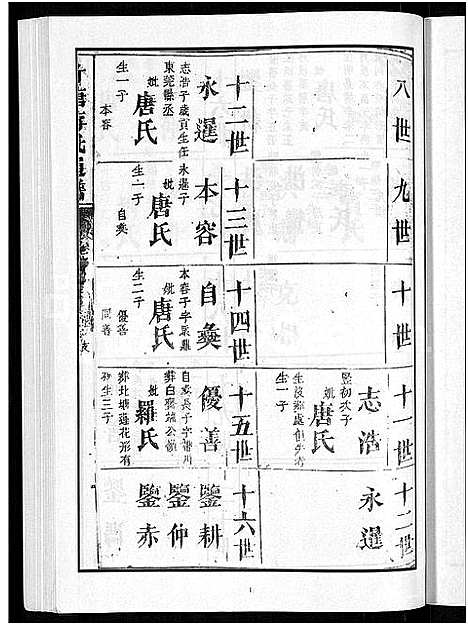 八世
九世
十世
十一世
志浩
竪初次子
妣唐氏
生一子
十二世
永暹
十二世
永暹
志浩子歲貢生任
東莞縣丞
妣唐氏
生一子
本容
十三世
本容
永暹子
妣唐氏
生一子
自奏
十四世
自奏
本容子字
妣唐氏
生二子
優善
同善
十五世
優善
自奏長子字
妣羅氏
葬北塘蓮花形有
生三子
十六世
鑒耕
鑒仲
鑒赤